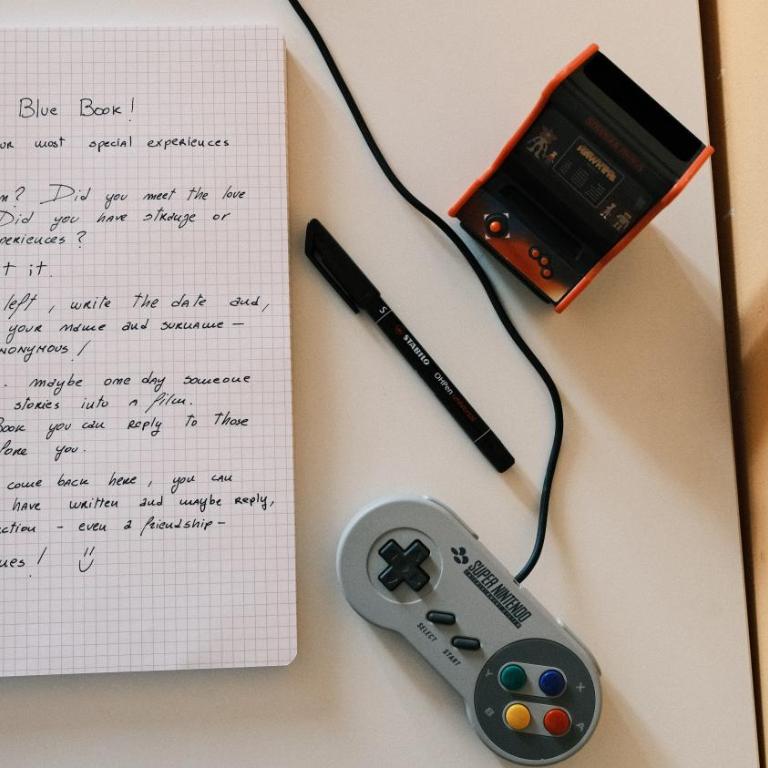 Blue Book!
ur most special experiences
m? Did you meet the love
Did you have strange or
periences?
t it.
left, write the date and,
your name and surname –
nonymous!
. maybe one day someone
stories into a film.
Book you can reply to those
fore you.
come back here, you can
have written and maybe reply,
ction – even a friendship –
ues! :)
HAWKINS
S STABILO OHPen universal
SUPER NINTENDO
SELECT START
Y X
B A